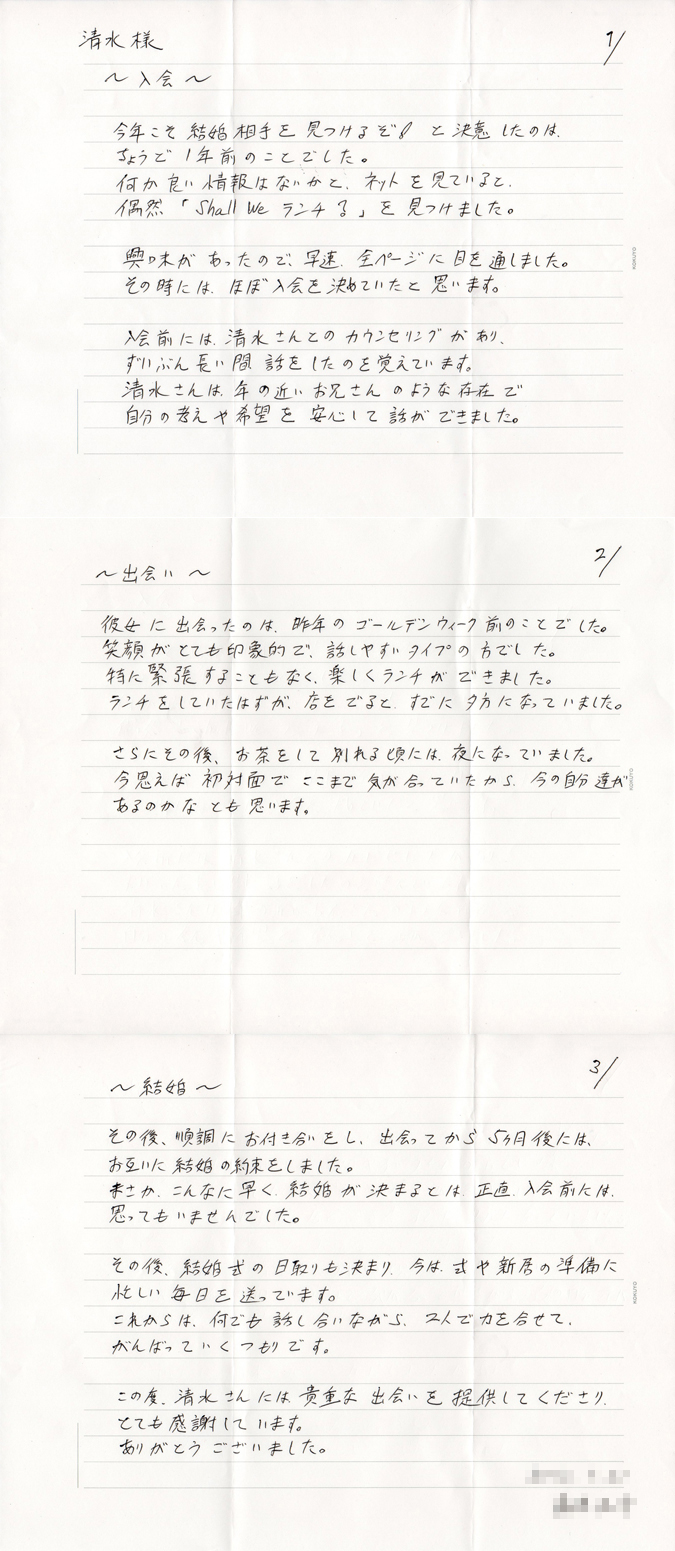 清水様
1/
〜入会〜
今年こそ結婚相手を見つけるぞ!と決意したのは、
ちょうど1年前のことでした。
何か良い情報はないかと、ネットを見ていると、
偶然「Shall We ランチる」を見つけました。
興味があったので、早速、全ページに目を通しました。
その時には、ほぼ入会を決めていたと思います。
入会前には、清水さんとのカウンセリングがあり、
ずいぶん長い間話をしたのを覚えています。
清水さんは、年の近いお兄さんのような存在で
自分の考えや希望を安心して話ができました。
KOKUYO
2/
〜出会い〜
彼女に出会ったのは、昨年のゴールデンウィーク前のことでした。
笑顔がとても印象的で、話しやすいタイプの方でした。
特に緊張することもなく、楽しくランチができました。
ランチをしていたはずが、店をでると、すでに夕方になっていました。
さらにその後、お茶をして別れる頃には、夜になっていました。
今思えば初対面でここまで気が合っていたから、今の自分達が
あるのかなとも思います。
KOKUYO
3/
〜結婚〜
その後、順調にお付き合いをし、出会ってから5ヶ月後には、
お互いに結婚の約束をしました。
まさか、こんなに早く、結婚が決まるとは、正直、入会前には、
思ってもいませんでした。
その後、結婚式の日取りも決まり、今は、式や新居の準備に
忙しい毎日を送っています。
これからは、何でも話し合いながら、2人で力を合せて、
がんばっていくつもりです。
この度、清水さんには、貴重な出会いを提供してくださり、
とても感謝しています。
ありがとうございました。
KOKUYO